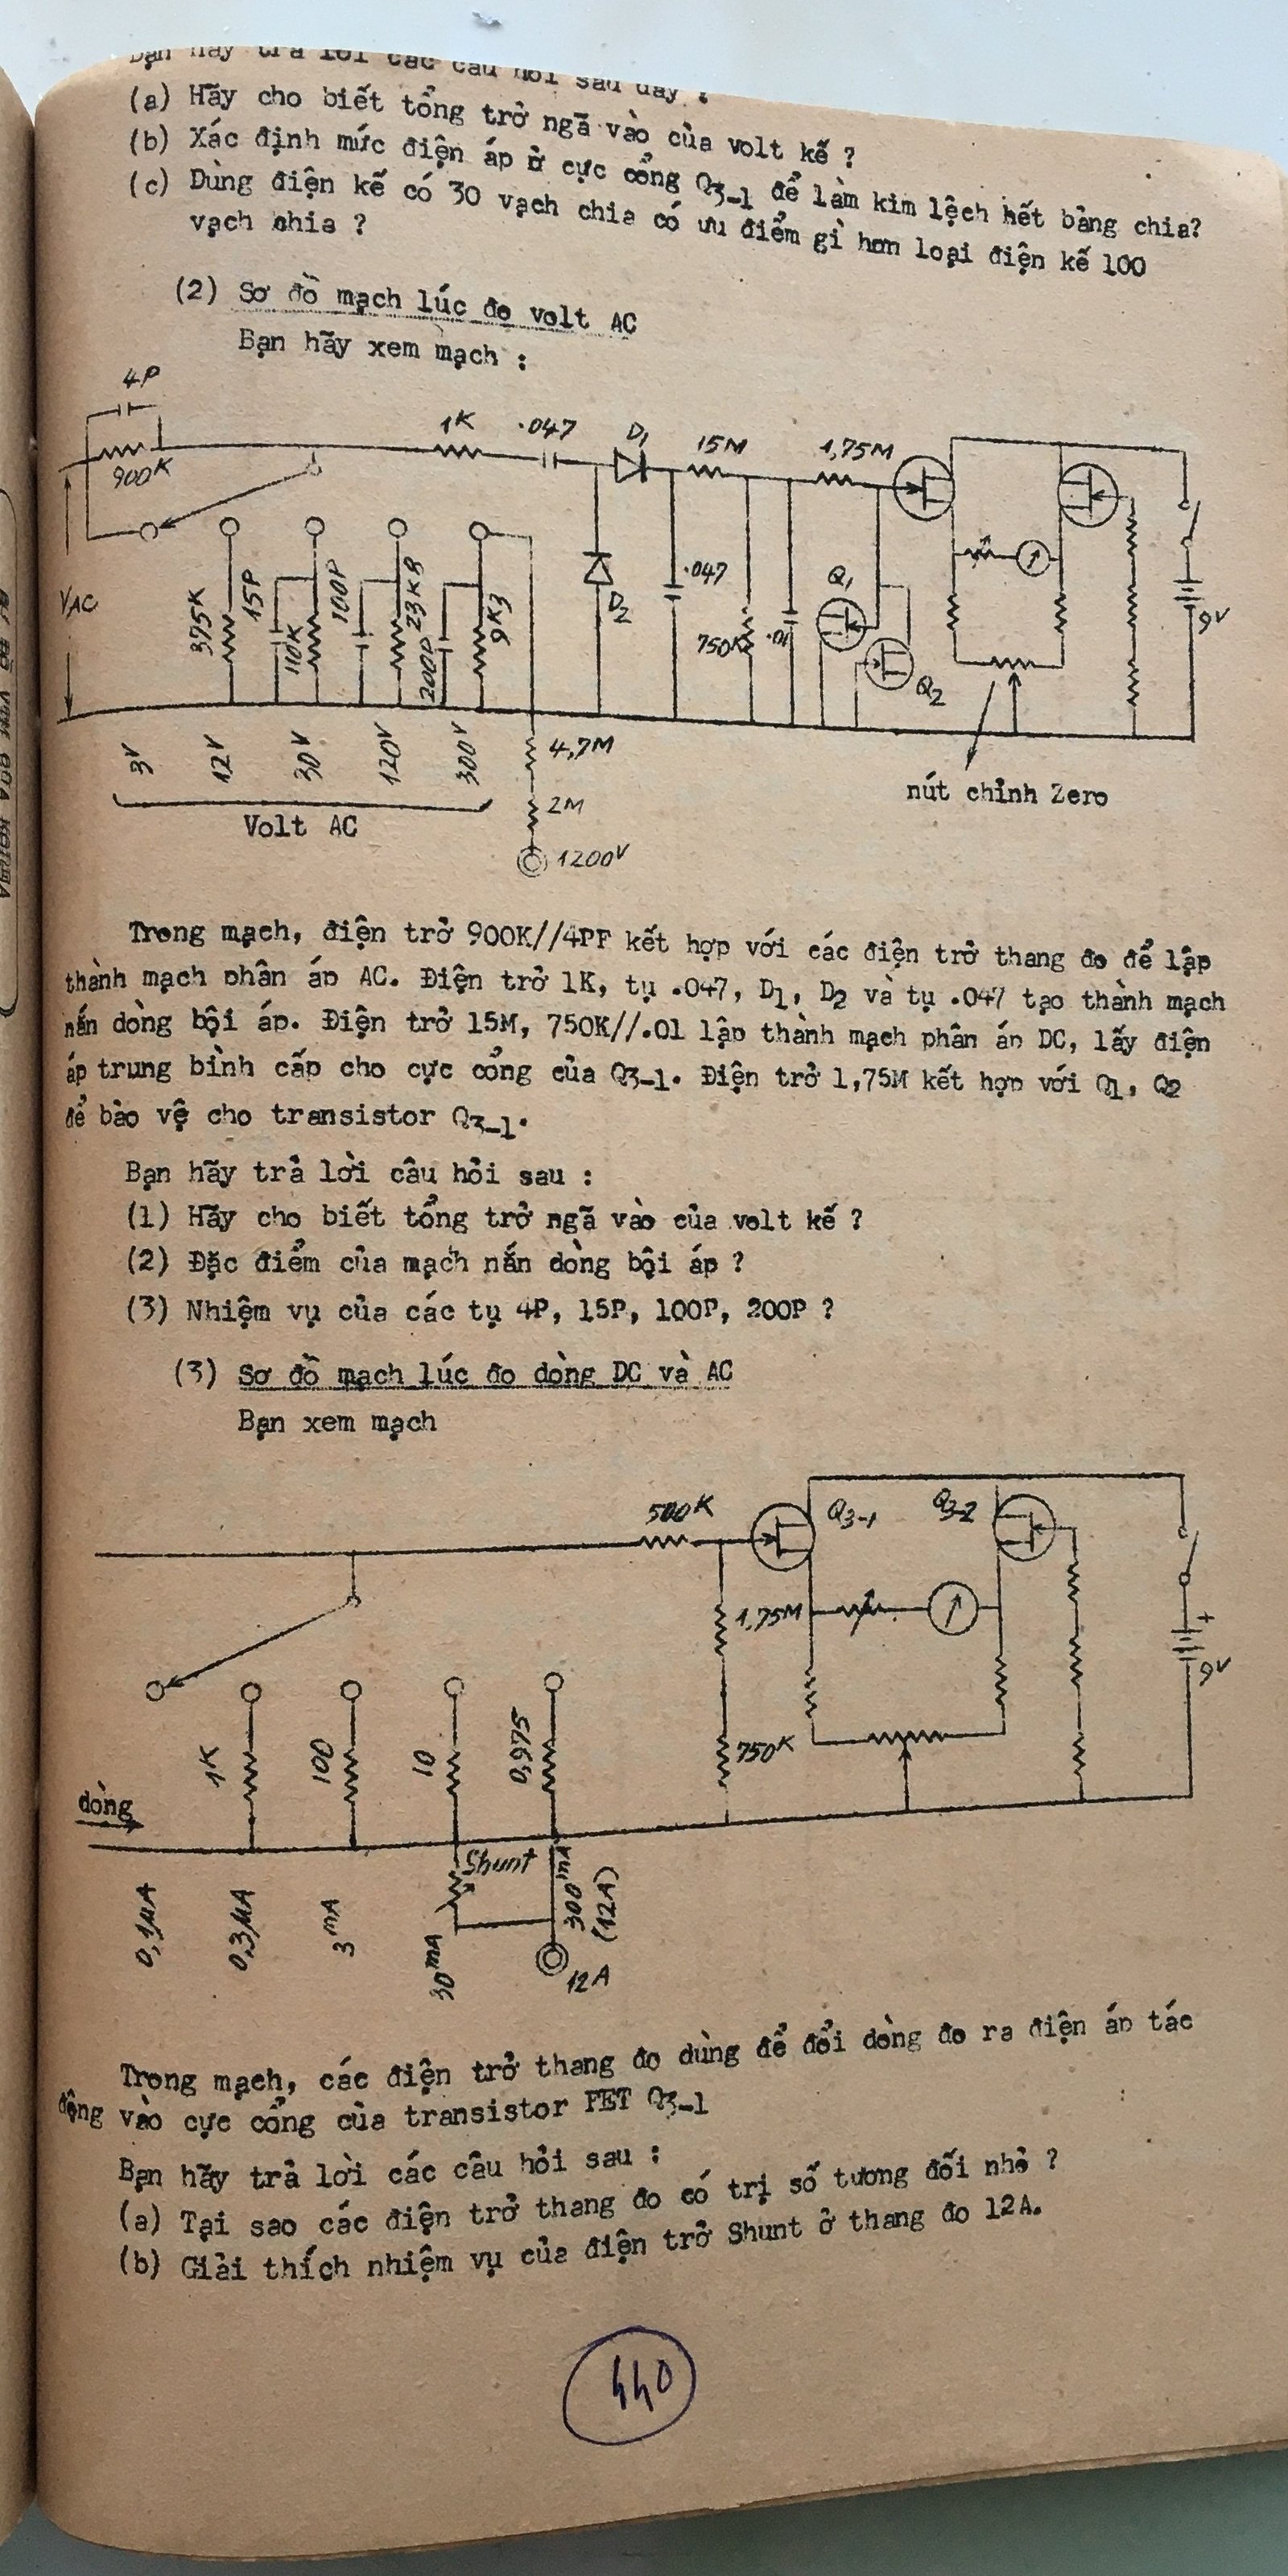 Bạn hãy trả lời các câu hỏi sau đây :
(a) Hãy cho biết tổng trở ngã vào của volt kế ?
(b) Xác định mức điện áp ở cực cổng Q3-1 để làm kim lệch hết bảng chia?
(c) Dùng điện kế có 30 vạch chia có ưu điểm gì hơn loại điện kế 100
vạch chia ?
(2) Sơ đồ mạch lúc đo volt AC
Bạn hãy xem mạch :
4P
900K
1K
.047
D1
15M
1,75M
VAC
375K
15P
110K
100P
23K8
200P
9K3
D2
.047
750K
.01
Q1
Q2
9V
3V
12V
30V
120V
300V
Volt AC
4,7M
2M
1200V
nút chỉnh Zero
Trong mạch, điện trở 900K//4PF kết hợp với các điện trở thang đo để lập
thành mạch phân áp AC. Điện trở 1K, tụ .047, D1, D2 và tụ .047 tạo thành mạch
nắn dòng bội áp. Điện trở 15M, 750K//.01 lập thành mạch phân áp DC, lấy điện
áp trung bình cấp cho cực cổng của Q3-1. Điện trở 1,75M kết hợp với Q1, Q2
để bảo vệ cho transistor Q3-1.
Bạn hãy trả lời câu hỏi sau :
(1) Hãy cho biết tổng trở ngã vào của volt kế ?
(2) Đặc điểm của mạch nắn dòng bội áp ?
(3) Nhiệm vụ của các tụ 4P, 15P, 100P, 200P ?
(3) Sơ đồ mạch lúc đo dòng DC và AC
Bạn xem mạch
500K
Q3-1
Q3-2
1,75M
750K
+
9V
1K
100
10
0,975
dòng
Shunt
0,1µA
0,3µA
3mA
30mA
300mA
(12A)
12A
Trong mạch, các điện trở thang đo dùng để đổi dòng đo ra điện áp tác
động vào cực cổng của transistor FET Q3-1
Bạn hãy trả lời các câu hỏi sau :
(a) Tại sao các điện trở thang đo có trị số tương đối nhỏ ?
(b) Giải thích nhiệm vụ của điện trở Shunt ở thang đo 12A.
440